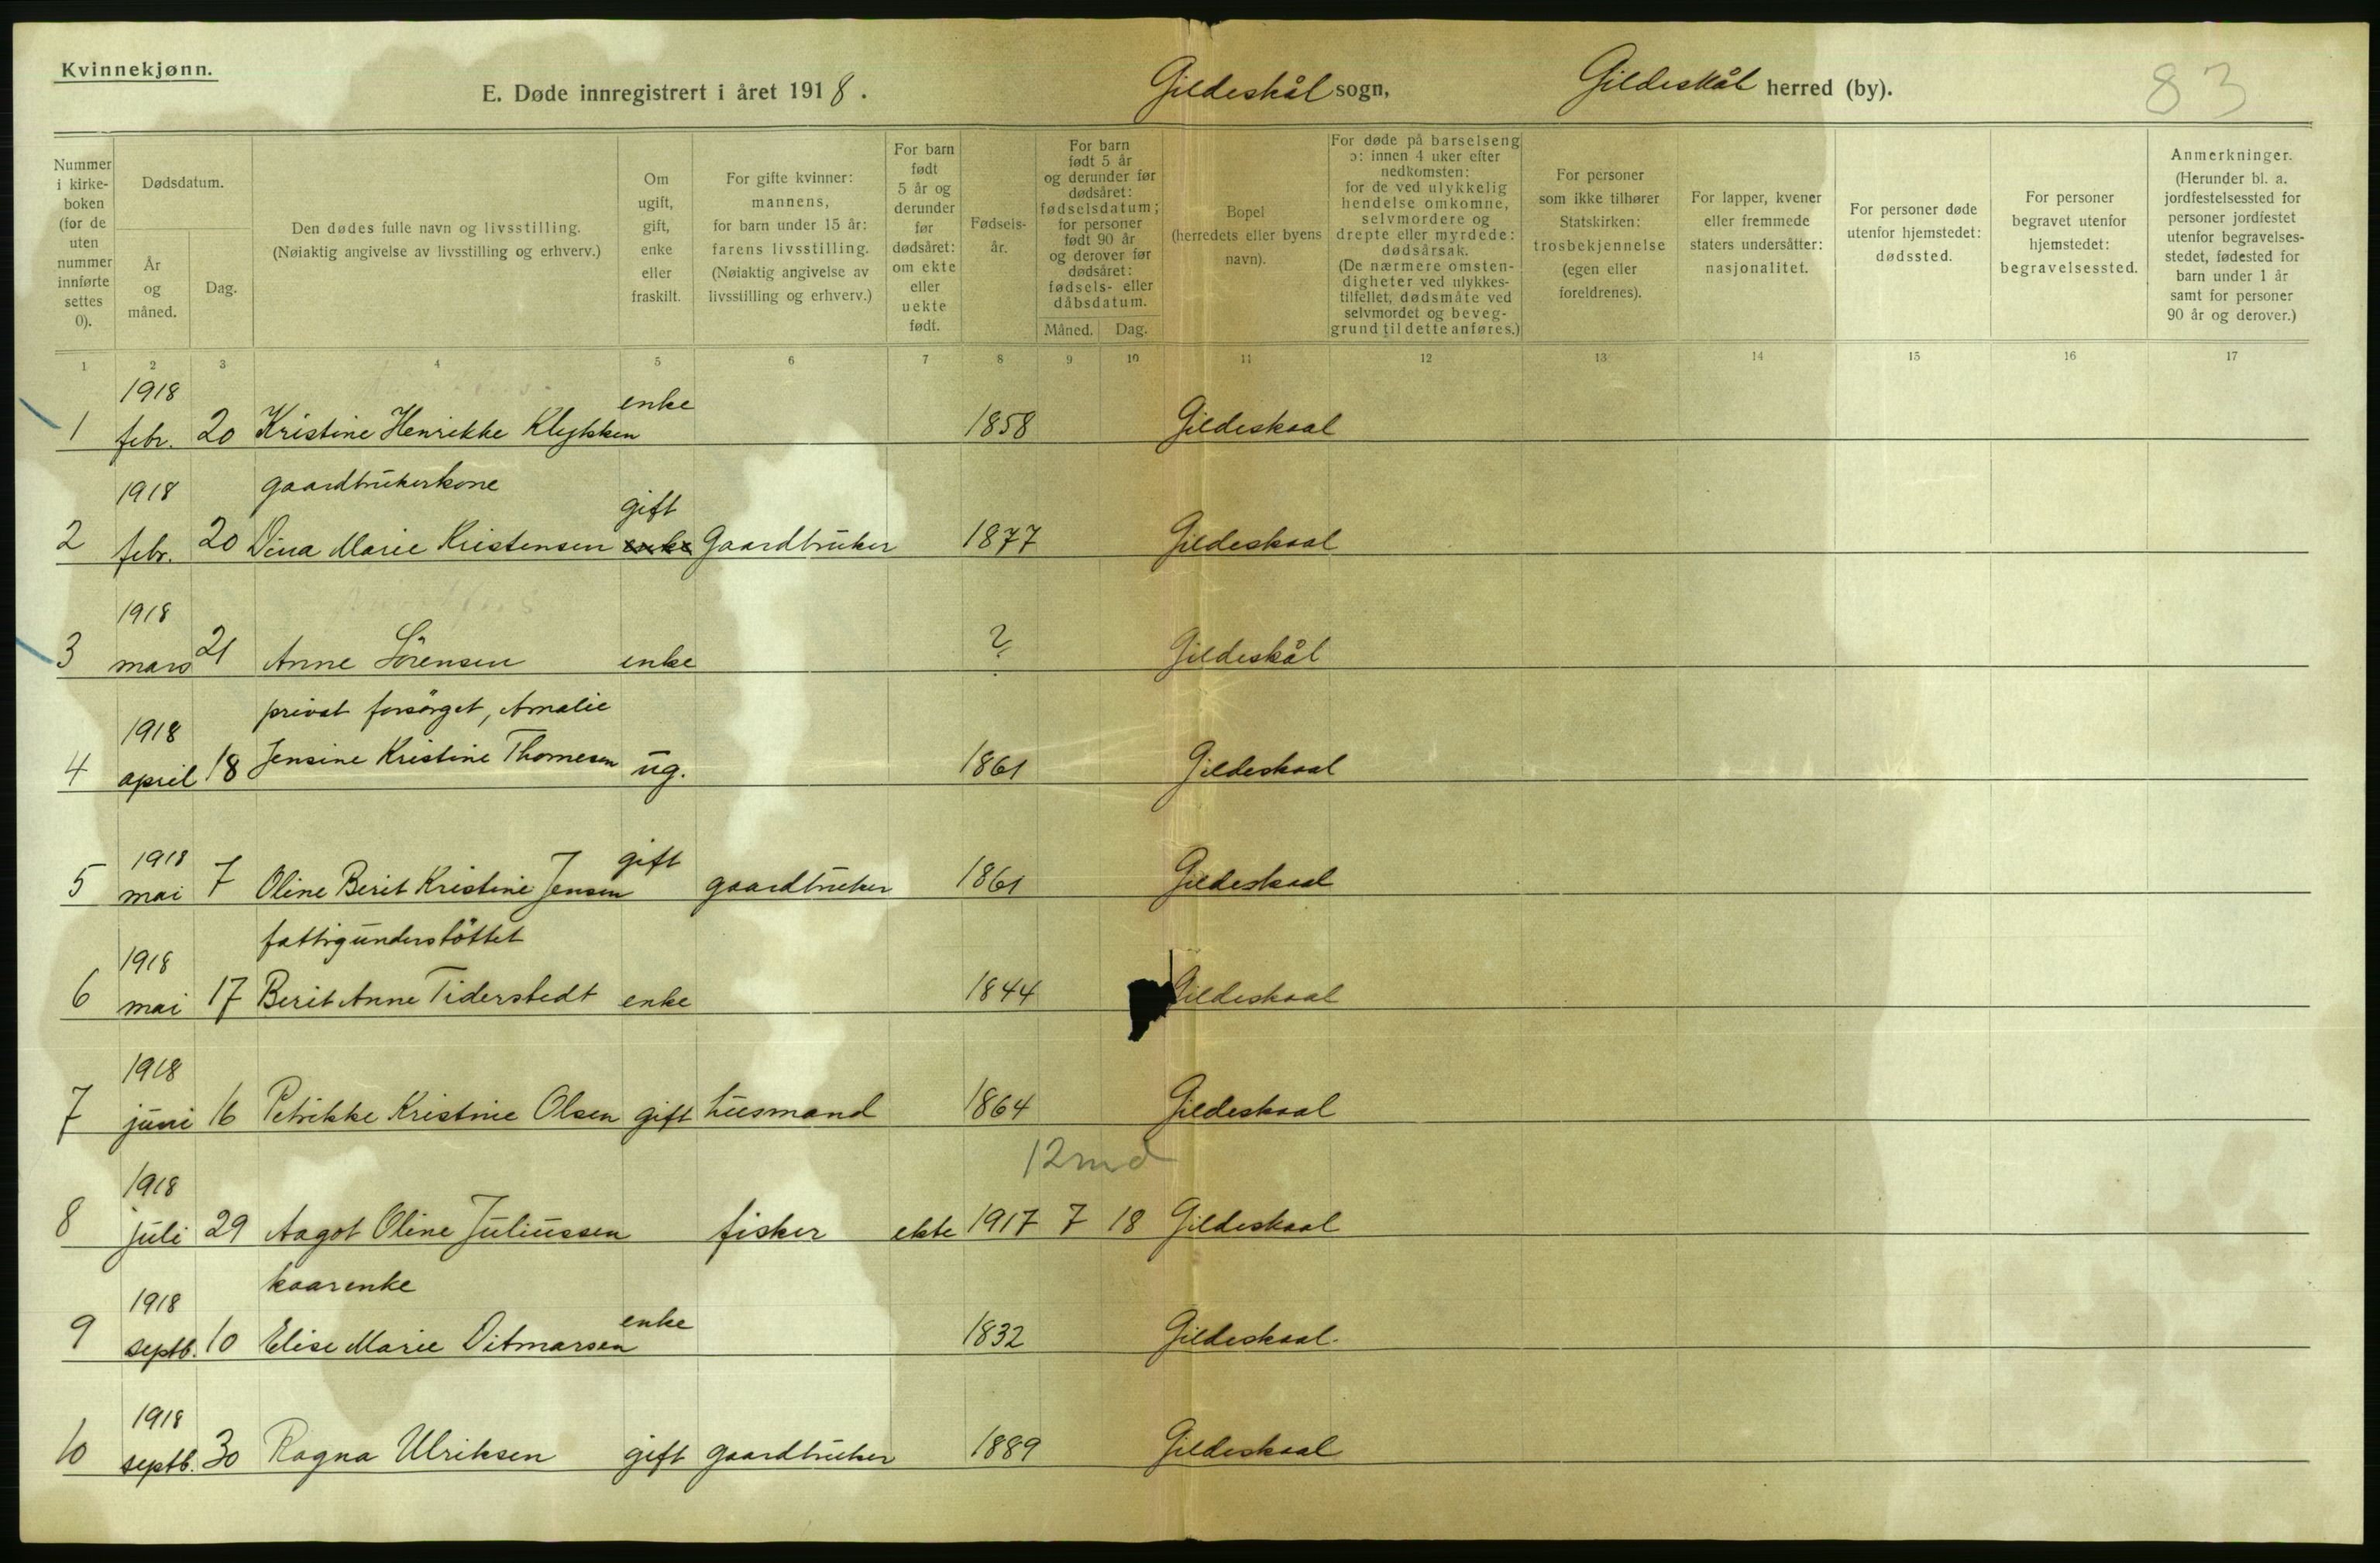 Kvinnekjønn.
E. Døde innregistrert i året 1918. Gildeskål sogn, Gildeskål herred (by). 83
Nummer i kirke- boken (for de uten nummer innførte settes 0).
Dødsdatum.
År og måned.
Dag.
Den dødes fulle navn og livsstilling.
(Nøiaktig angivelse av livsstilling og erhverv.)
Om ugift, gift, enke eller fraskilt.
For gifte kvinner: mannens, for barn under 15 år: farens livsstilling. (Nøiaktig angivelse av livsstilling og erhverv.)
For barn født 5 år og derunder før dødsåret: om ekte eller uekte født.
Fødsels- år.
For barn født 5 år og derunder før dødsåret: fødselsdatum; for personer født 90 år og derover før dødsåret: fødsels- eller dåbsdatum.
Måned. Dag.
Bopel (herredets eller byens navn).
For døde på barselseng ɔ: innen 4 uker efter nedkomsten: for de ved ulykkelig hendelse omkomne, selvmordere og drepte eller myrdede: dødsårsak. (De nærmere omsten- digheter ved ulykkes- tilfellet, dødsmåte ved selvmordet og beveg- grund til dette anføres.)
For personer som ikke tilhører Statskirken: trosbekjennelse (egen eller foreldrenes).
For lapper, kvener eller fremmede staters undersåtter: nasjonalitet.
For personer døde utenfor hjemstedet: dødssted.
For personer begravet utenfor hjemstedet: begravelsessted.
Anmerkninger. (Herunder bl. a. jordfestelsessted for personer jordfestet utenfor begravelses- stedet, fødested for barn under 1 år samt for personer 90 år og derover.)
1 2 3 4 5 6 7 8 9 10 11 12 13 14 15 16 17
1918 enke
1 febr. 20 Kristine Henrikke Klykken 1858 Gildeskaal
1918 gaardbrukerkone gift
2 febr. 20 Dina Marie Kristensen enke Gaardbruker 1877 Gildeskaal
1918
3 mars 21 Anne Sörensen enke ? Gildeskål
1918 privat forsörget, Amalie
4 april 18 Jensine Kristine Thomesen ug. 1861 Gildeskaal
1918 gift
5 mai 7 Oline Berit Kristine Jensen gaardbruker 1861 Gildeskaal
1918 fattigunderstöttet
6 mai 17 Berit Anne Tiderstedt enke 1844 Gildeskaal
1918
7 juni 16 Petrikke Kristine Olsen gift husmand 1864 Gildeskaal
1918 12 md
8 juli 29 Aagot Oline Juliussen fisker ekte 1917 7 18 Gildeskaal
1918 kaarenke enke
9 septb. 10 Elise Marie Ditmarsen 1832 Gildeskaal.
1918
10 septb. 30 Ragna Ulriksen gift gaardbruker 1889 Gildeskaal